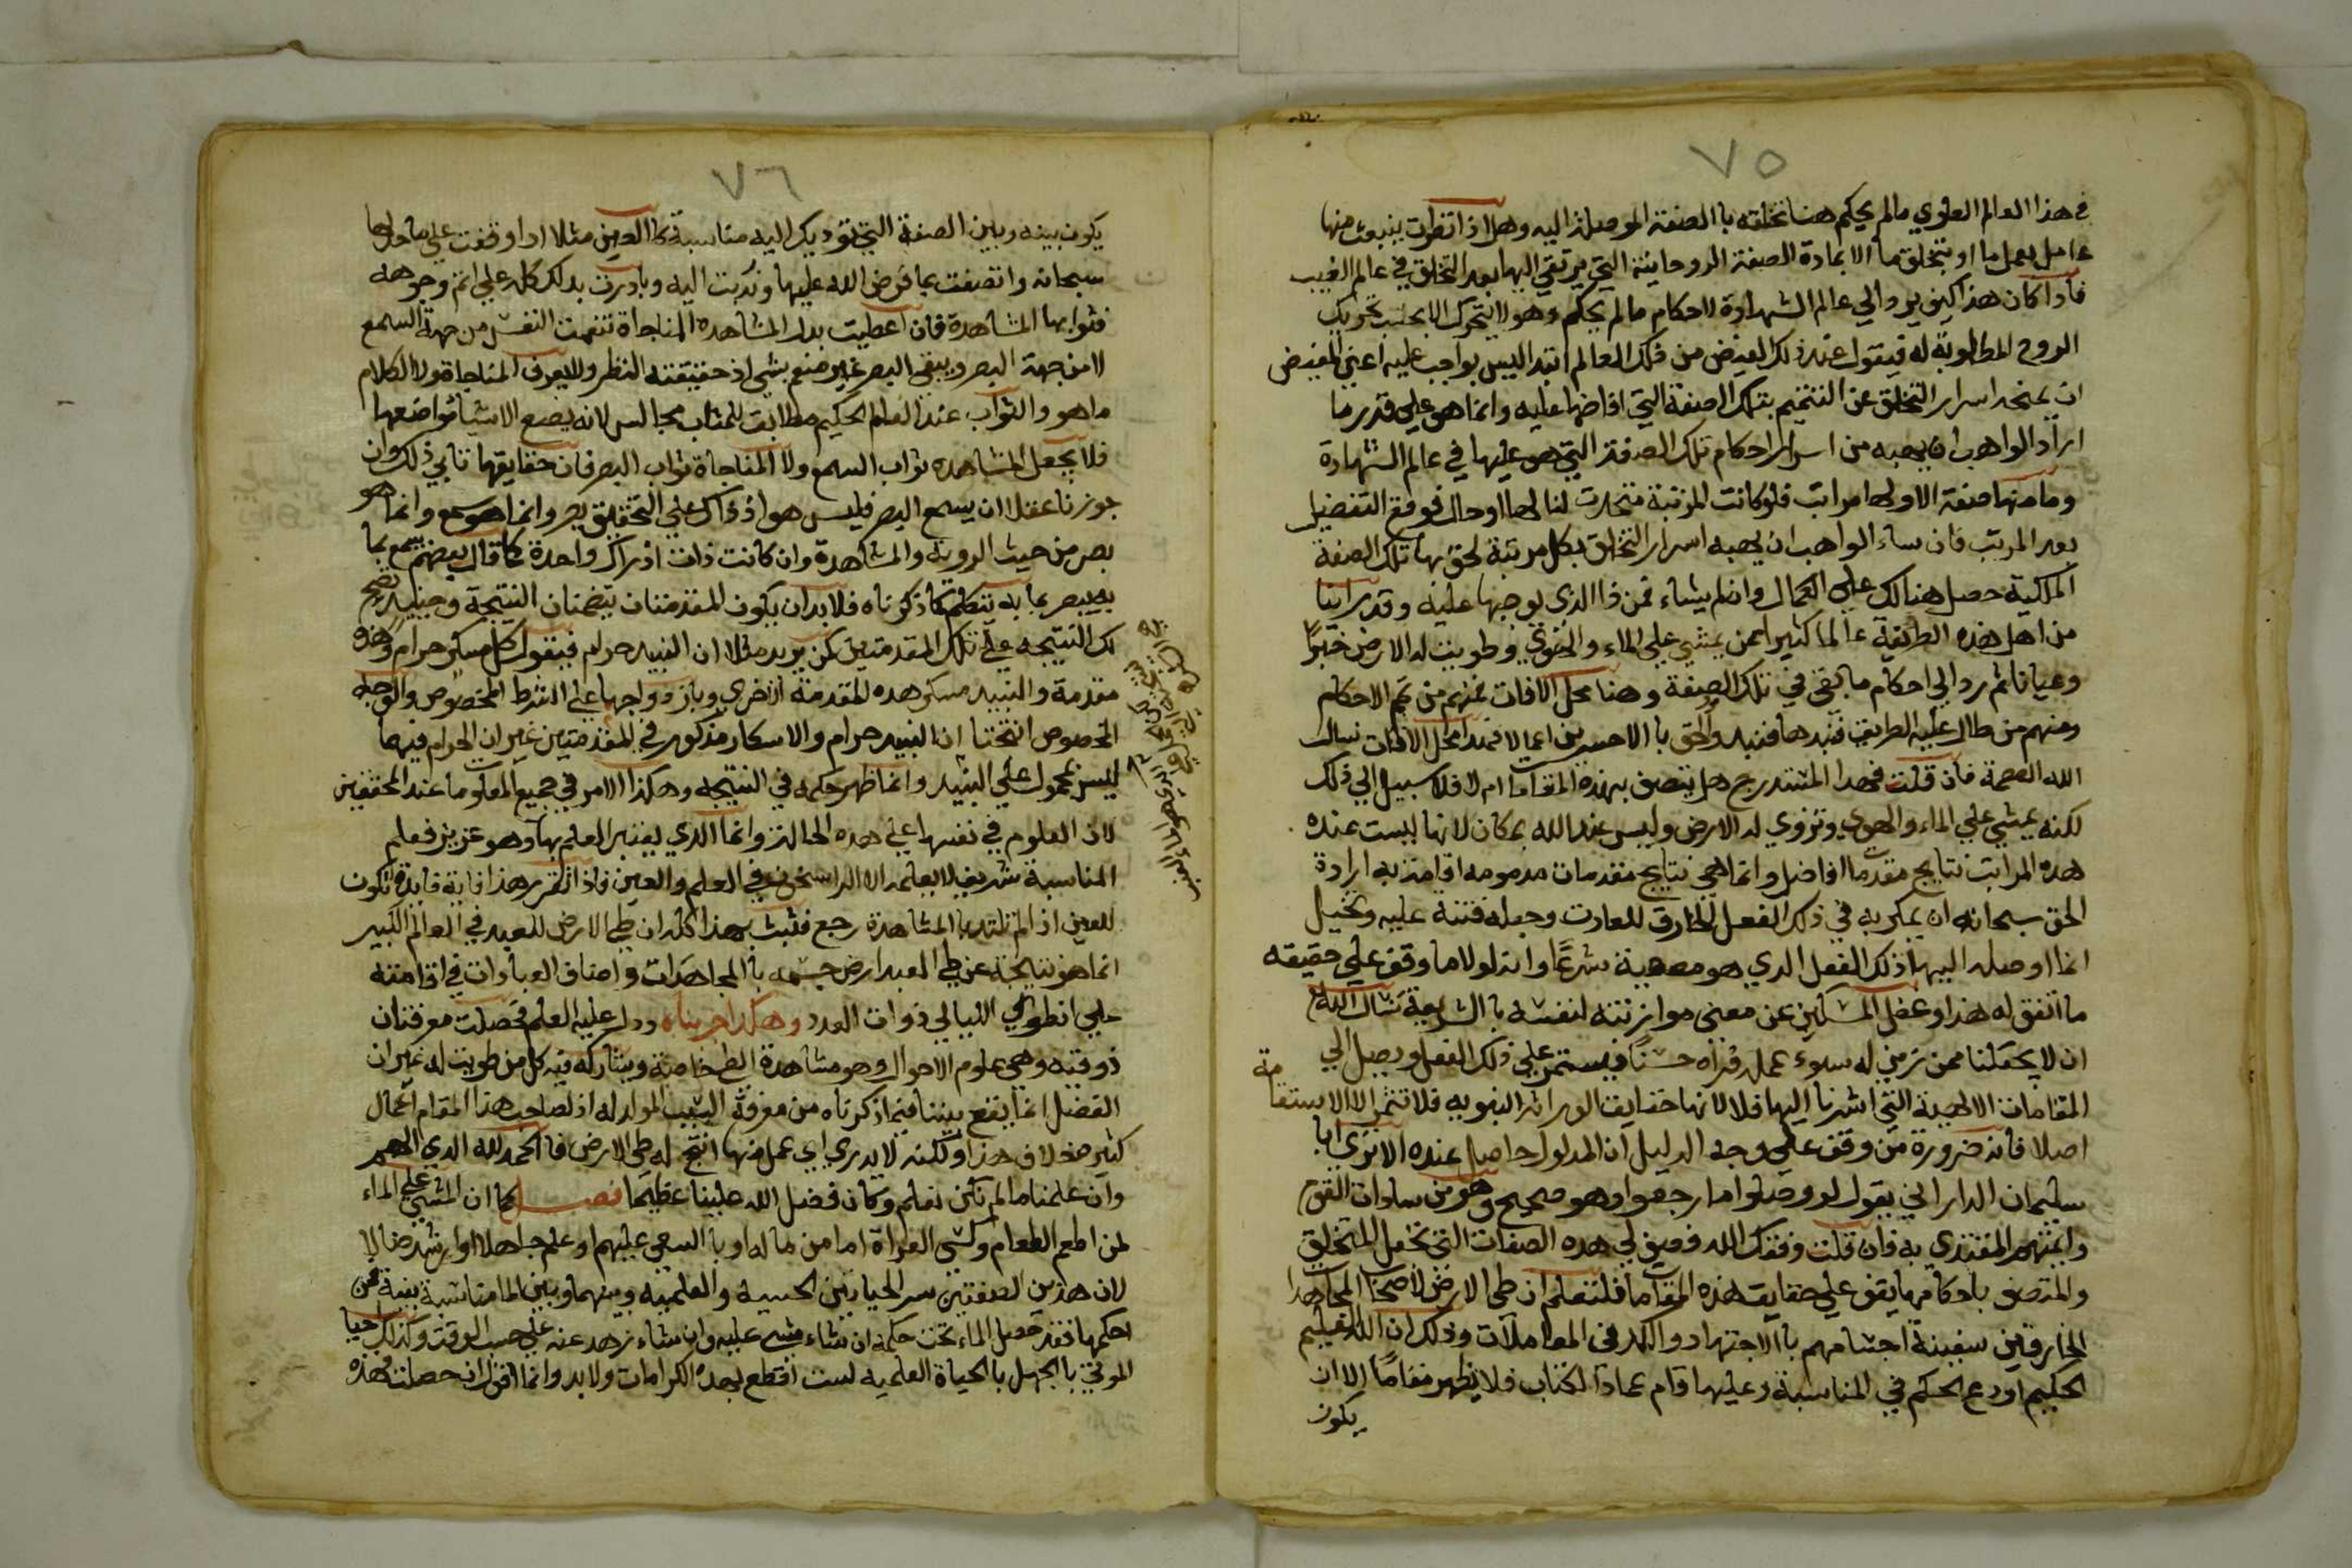 ٧٥
في هذا العالم العلوي مالم يحكم هنا تخلقه باالصفة الموصلة اليه وهل اذا تفطرت ينبعث منها
عامل يعمل بها او يتخلق بها الا بمادة الصفة الروحانية التي يرتقي اليها بعد التخلق في عالم الغيب
فاذا كان هذا كيف يرد الي عالم الشهادة لاحكام مالم يحكم وهو لا يتحرك الا بحسب تحريك
الروح المطلوبة له فيقول عند ذلك الفيض من فلك العالم ابتدا ليس بواجب عليه اعني المفيض
ان يمنحه اسرار التخلق عن التتميم بتلك الصفة التي افاضها عليه وانما هو علي قدر ما
اراد الواهب ان يهبه من اسرار احكام تلك الصفة التي هو عليها في عالم الشهادة
وما منها صفة الا ولها مراتب فلو كانت المرتبة متحدت لنا لها او حال فوقع التفضيل
بعد المرتب فان ساء الواهب ان يهبه اسرار التخلق بكل مرتبة لحق بها تلك الصفة
الملكية حصل هنالك علي الكمال وان لم يشاء فمن ذا الذي يوجبها عليه وقد راينا
من اهل هذه الطريقة عالما كثيرا ممن يمشي علي الماء والهوي وطويت له الارض خبرًا
وعيانا ثم رد الي احكام ما بقي في تلك الصفة وهنا محل الافات فمنهم من تمم الاحكام
ومنهم من طال عليه الطريق فنبدها فنبد والحق باالاخسرين اعمالا فهدا محل الافات نسال
الله العصمة فان قلت فهدا المستدرج هل يتصف بهذه المقامات ام لا فلا سبيل الي ذلك
لكنه يمشي علي الماء والهوي وتزوي له الارض وليس عند الله بمكان لانها ليست عنده
هده المراتب نتايج مقدمات افاضل وانما هي نتايج مقدمات مدمومه اقامت به ارادة
الحق سبحانه ان يمكر به في ذلك الفعل الخارق للعادت وجعله فتنة عليه وتخيل
انما اوصله اليها ذلك الفعل الدي هو معصية شرعًا وانه لولا ما وقف علي حقيقه
ما اتفق له هذا وغفل المسكين عن معنى موازنته لنفسه باالشريعة نسال الله
ان لا يجعلنا ممن زين له سوء عمله فراه حسنًا فيستمر علي ذلك الفعل ويصل الي
المقامات الالهية التي اشرنا اليها فلا لانها حقايق الوراثة النبويه فلا تثمر الا الاستقامة
اصلا فانه ضرورة من وقف علي وجه الدليل ان المدلول حاصل عنده الا تري ابا
سليمان الداراني يقول لو وصلوا ما رجعوا وهو صحيح وهو من سادات القوم
وايمتهم المقتدي به فان قلت وفقك الله فبين لي هده الصفات التي تجعل المتخلق
والمتصف باحكامها يقف علي حقايق هذه المقامات فلتعلم ان طي الارض لاصحاب المجاهدا
الخارقين سفينة اجسامهم باالاجتهاد والكد في المعاملات وذلك ان الله العليم
الحكيم اودع الحكم في المناسبة وعليها اقام عماد الكتاب فلا يظهر مقامًا الا ان
يكون
٧٦
يكون بينه وبين الصفة التي توديك اليه مناسبة كاالعين مثلا اذا وقفت علي ما حد لها
سبحانه واتصفت بما فرض الله عليها وندبت اليه وبادرت بدلك كله علي اتم وجوهه
فثوابها المشاهدة فان اعطيت بدل المشاهده المناجاة تنعمت النفس من جهة السمع
لا من جهة البصر ويبقى البصر غير منعم بشي اذ حقيقته النظر ولا يعرف المناجاة ولا الكلام
ما هو والثواب عند العالم الحكيم مطابق للمثاب مجالس لانه يضع الاشياء مواضعها
فلا يجعل المشاهده ثواب السمع ولا المناجاة ثواب البصر فان حقايقها تابي ذلك وان
جوزنا عقلا ان يسمع البصر فليس هو اذ ذاك علي التحقيق بصر وانما هو سمع وانما هو
بصر من حيث الروية والمشاهدة وان كانت ذات ادراك واحدة كما قال بعضهم يسمع بما
به يبصر بما به يتكلم كما ذكرناه فلا بد ان يكون المقدمتان يتضمنان النتيجة وحينيد تصح
لك النتيجه علي تلك المقدمتين كمن يريد مثلا ان النبيد حرام فيقول كل مسكر حرام وهذه
مقدمة والنبيد مسكر هده المقدمة الاخري وبازدواجها علي الشرط المخصوص والوجه
المخصوص انتجتا ان النبيد حرام والاسكار مذكور في المقدمتين غير ان الحرام فيهما
ليس بمحمول علي النبيد وانما ظهر حكمه في النتيجه وهكذا الامر في جميع المعلومات عند المحققين
لان العلوم في نفسها علي هده الحالة وانما الدي يعتبر العلم بها وهو عزيز فعلم
المناسبة شريف لا يعلمه الا الراسخون في العلم والعين فاذا تقرر هذا فاية فايدة تكون
للعين اذا لم تلتد باالمشاهدة رجع فثبت بهذا كله ان طي الارض للعبد في العالم الكبير
انما هو نتيجة عن طي العبد ارض جسمه باالمجاهدات واصناف العبادات في اقامته
علي انطواي الليالي ذوات العدد وهكذا جربناه ودل عليه العلم فحصلت معرفتان
ذوقيه وهي علوم الاحوال وهو مشاهدة الطي خاصة ويشاركه فيه كل من طويت له غير ان
الفضل انما يقع بيننا فيما ذكرناه من معرفة السبب المولد له اذ لصاحب هذا المقام اعمال
كثير خلاف هذا ولكنه لا يدري اي عمل منها انتج له طي الارض فاالحمد لله الدي الهمر
وان علمنا ما لم نكن نعلم وكان فضل الله علينا عظيما فصل كما ان المشي علي الماء
لمن اطعم الطعام وكسى العراة اما من ماله او باالسعي عليهم او علم جاهلا او ارشد ضالا
لان هذين الصفتين سر الحياتين الحسيه والعلميه وبينهما وبين الما مناسبة بينة فمن
احكمها فقد حصل الماء تحت حكمه ان شاء مشي عليه وان شاء زهد عنه علي حسب الوقت وكذلك احيا
الموتي باالجهل باالحياة العلميه لست اقطع بهده الكرامات ولا بد وانما اقول ان حصلت فهذه